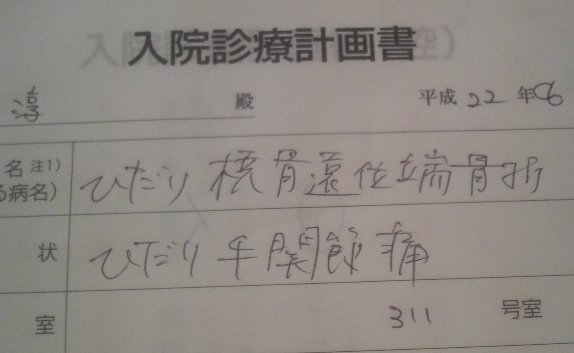 入院診療計画書
淳 殿 平成 22 年 6
名 注1)
る病名) ひだり 橈骨遠位端骨折
状 ひだり 手関節痛
室 311 号室